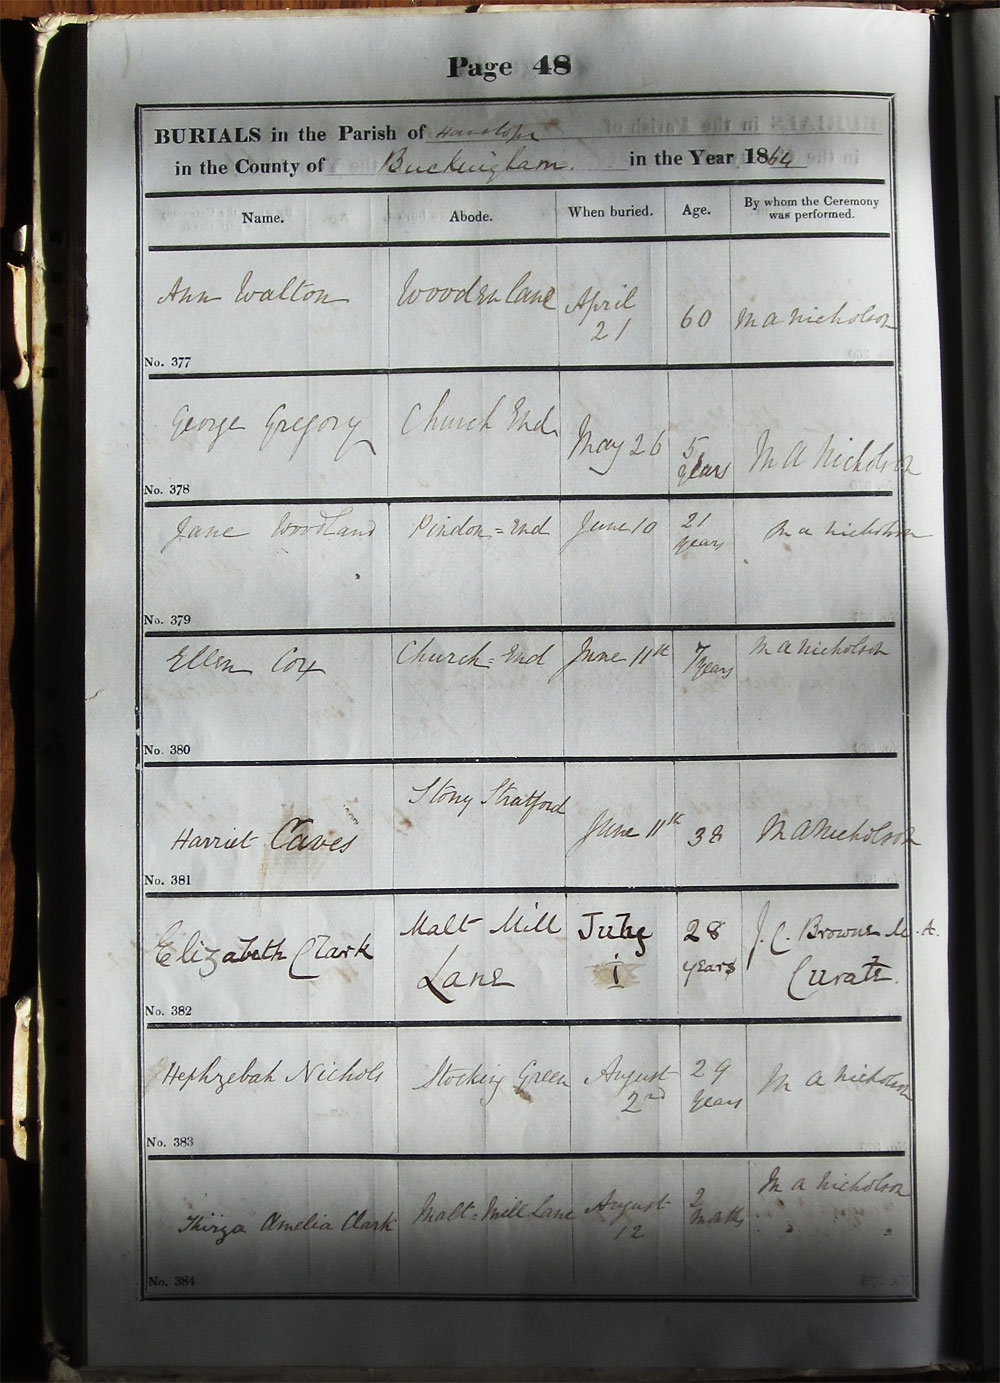 Page 48
BURIALS in the Parish of Hanslope
in the County of Buckingham. in the Year 1864
Name. Abode. When buried. Age. By whom the Ceremony was performed.
Ann Walton Wooden Lane April 21 60 M A Nicholson
No. 377
George Gregory Church End May 26 5 years M A Nicholson
No. 378
Jane Woodland Pindon = End June 10 21 years M A Nicholson
No. 379
Ellen Cox Church = End June 11th 7 years M A Nicholson
No. 380
Harriet Caves Stony Stratford June 11th 38 M A Nicholson
No. 381
Elizabeth Clark Malt Mill Lane July 1 28 years J. C. Browne M. A. Curate.
No. 382
Hephzebah Nichols Stocking Green August 2nd 29 years M A Nicholson
No. 383
Thirza Amelia Clark Malt = Mill Lane August 12 2 months M A Nicholson
No. 384